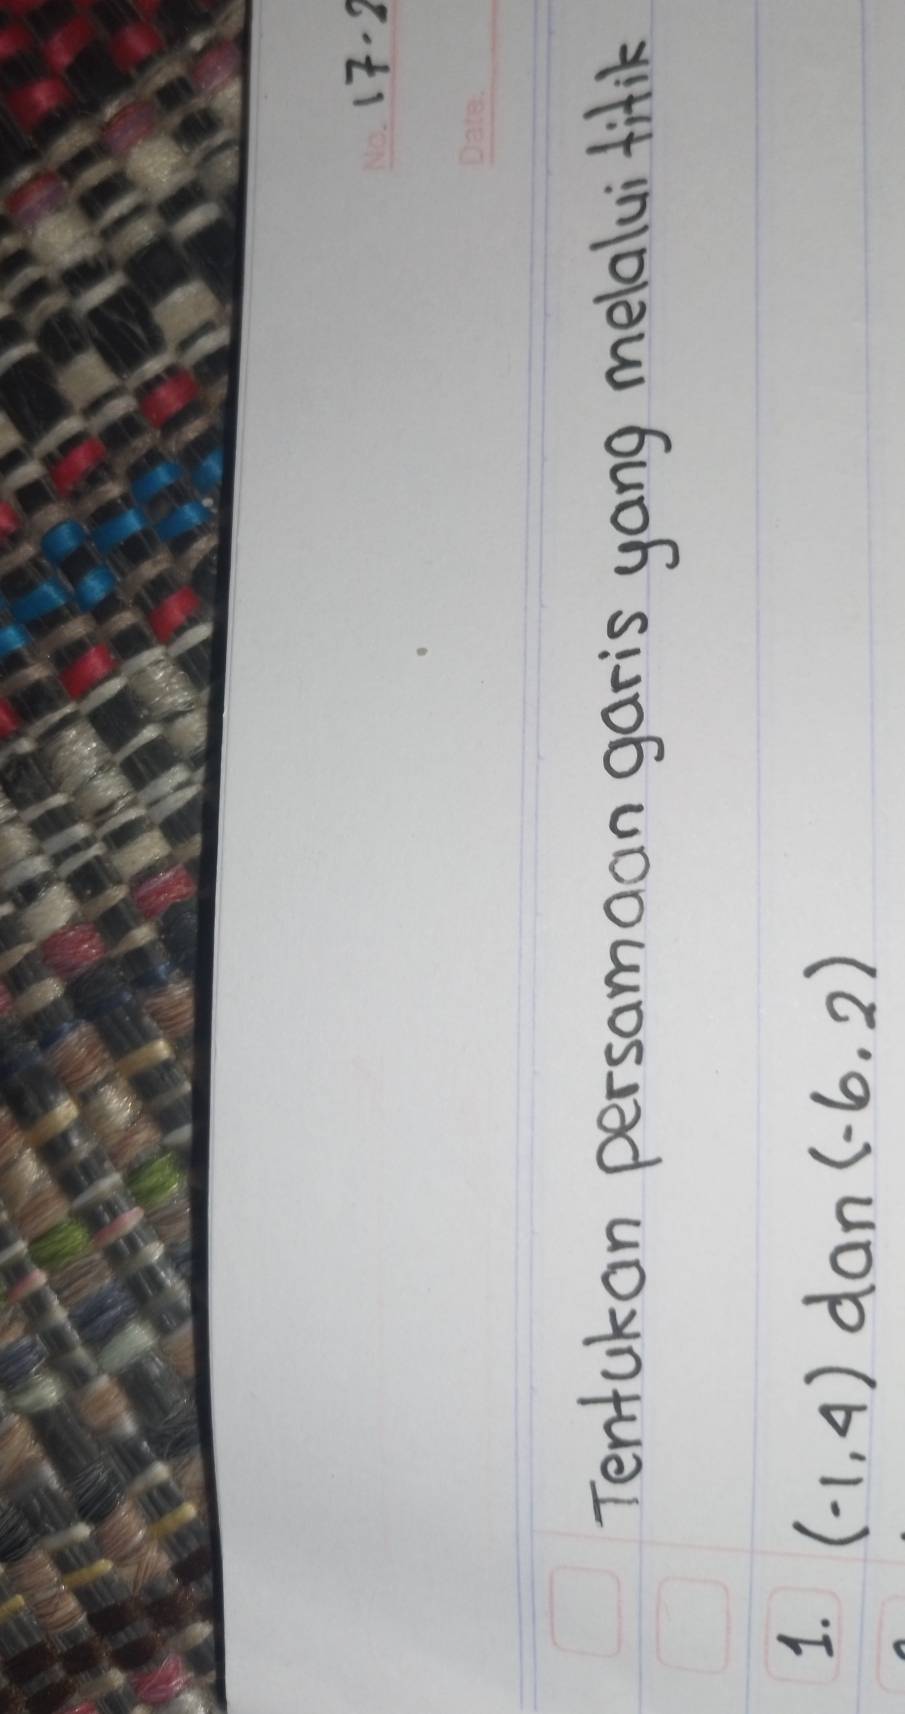 No. 17.2
Date.
Tentukan persamaan garis yang melalui titik
1. (-1,4) dan (-6.2)